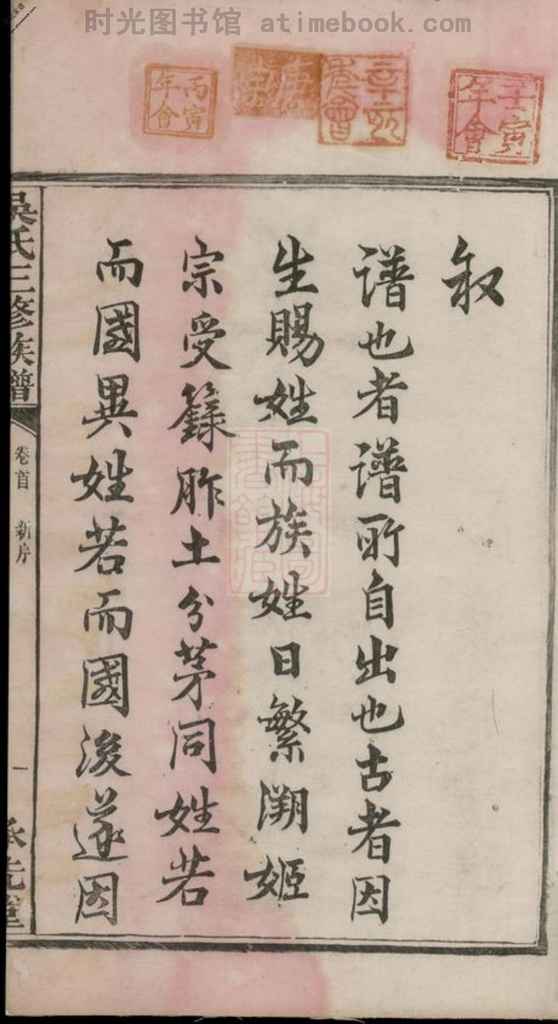 时光图书馆 atimebook.com
壬寅年會
丙寅年會
叙
譜也者譜所自出也古者因
生賜姓而族姓日繁溯姬
宗受籙胙土分茅同姓若
而國異姓若而國後遂因
吳氏三修族譜
卷首 新序
一
承先堂